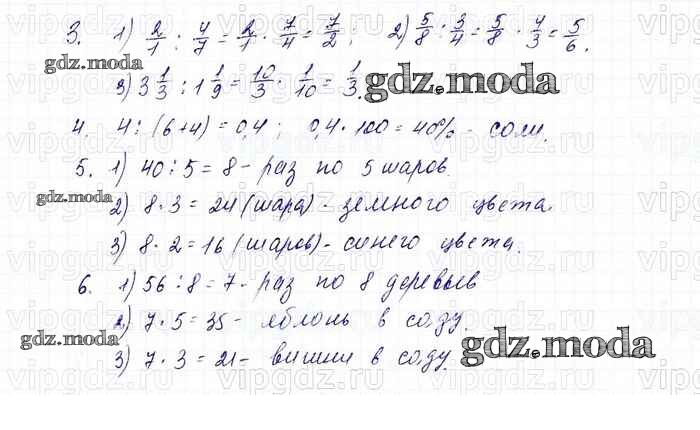 3. 1) 2/1 : 4/7 = 2/1 · 7/4 = 7/2; 2) 5/8 : 3/4 = 5/8 · 4/3 = 5/6.
gdz.moda
3) 3 1/3 : 1 1/9 = 10/3 · 1/10 = 1/3.
gdz.moda
4. 4 : (6+4) = 0,4; 0,4 · 100 = 40% - соли.
5. 1) 40 : 5 = 8 - раз по 5 шаров.
gdz.moda
2) 8 · 3 = 24 (шара) - земного цвета
3) 8 · 2 = 16 (шаров) - синего цвета.
6. 1) 56 : 8 = 7 - раз по 8 деревьев
2) 7 · 5 = 35 - яблонь в саду.
gdz.moda
gdz.moda
3) 7 · 3 = 21 - вишни в саду.
vipgdz.ru